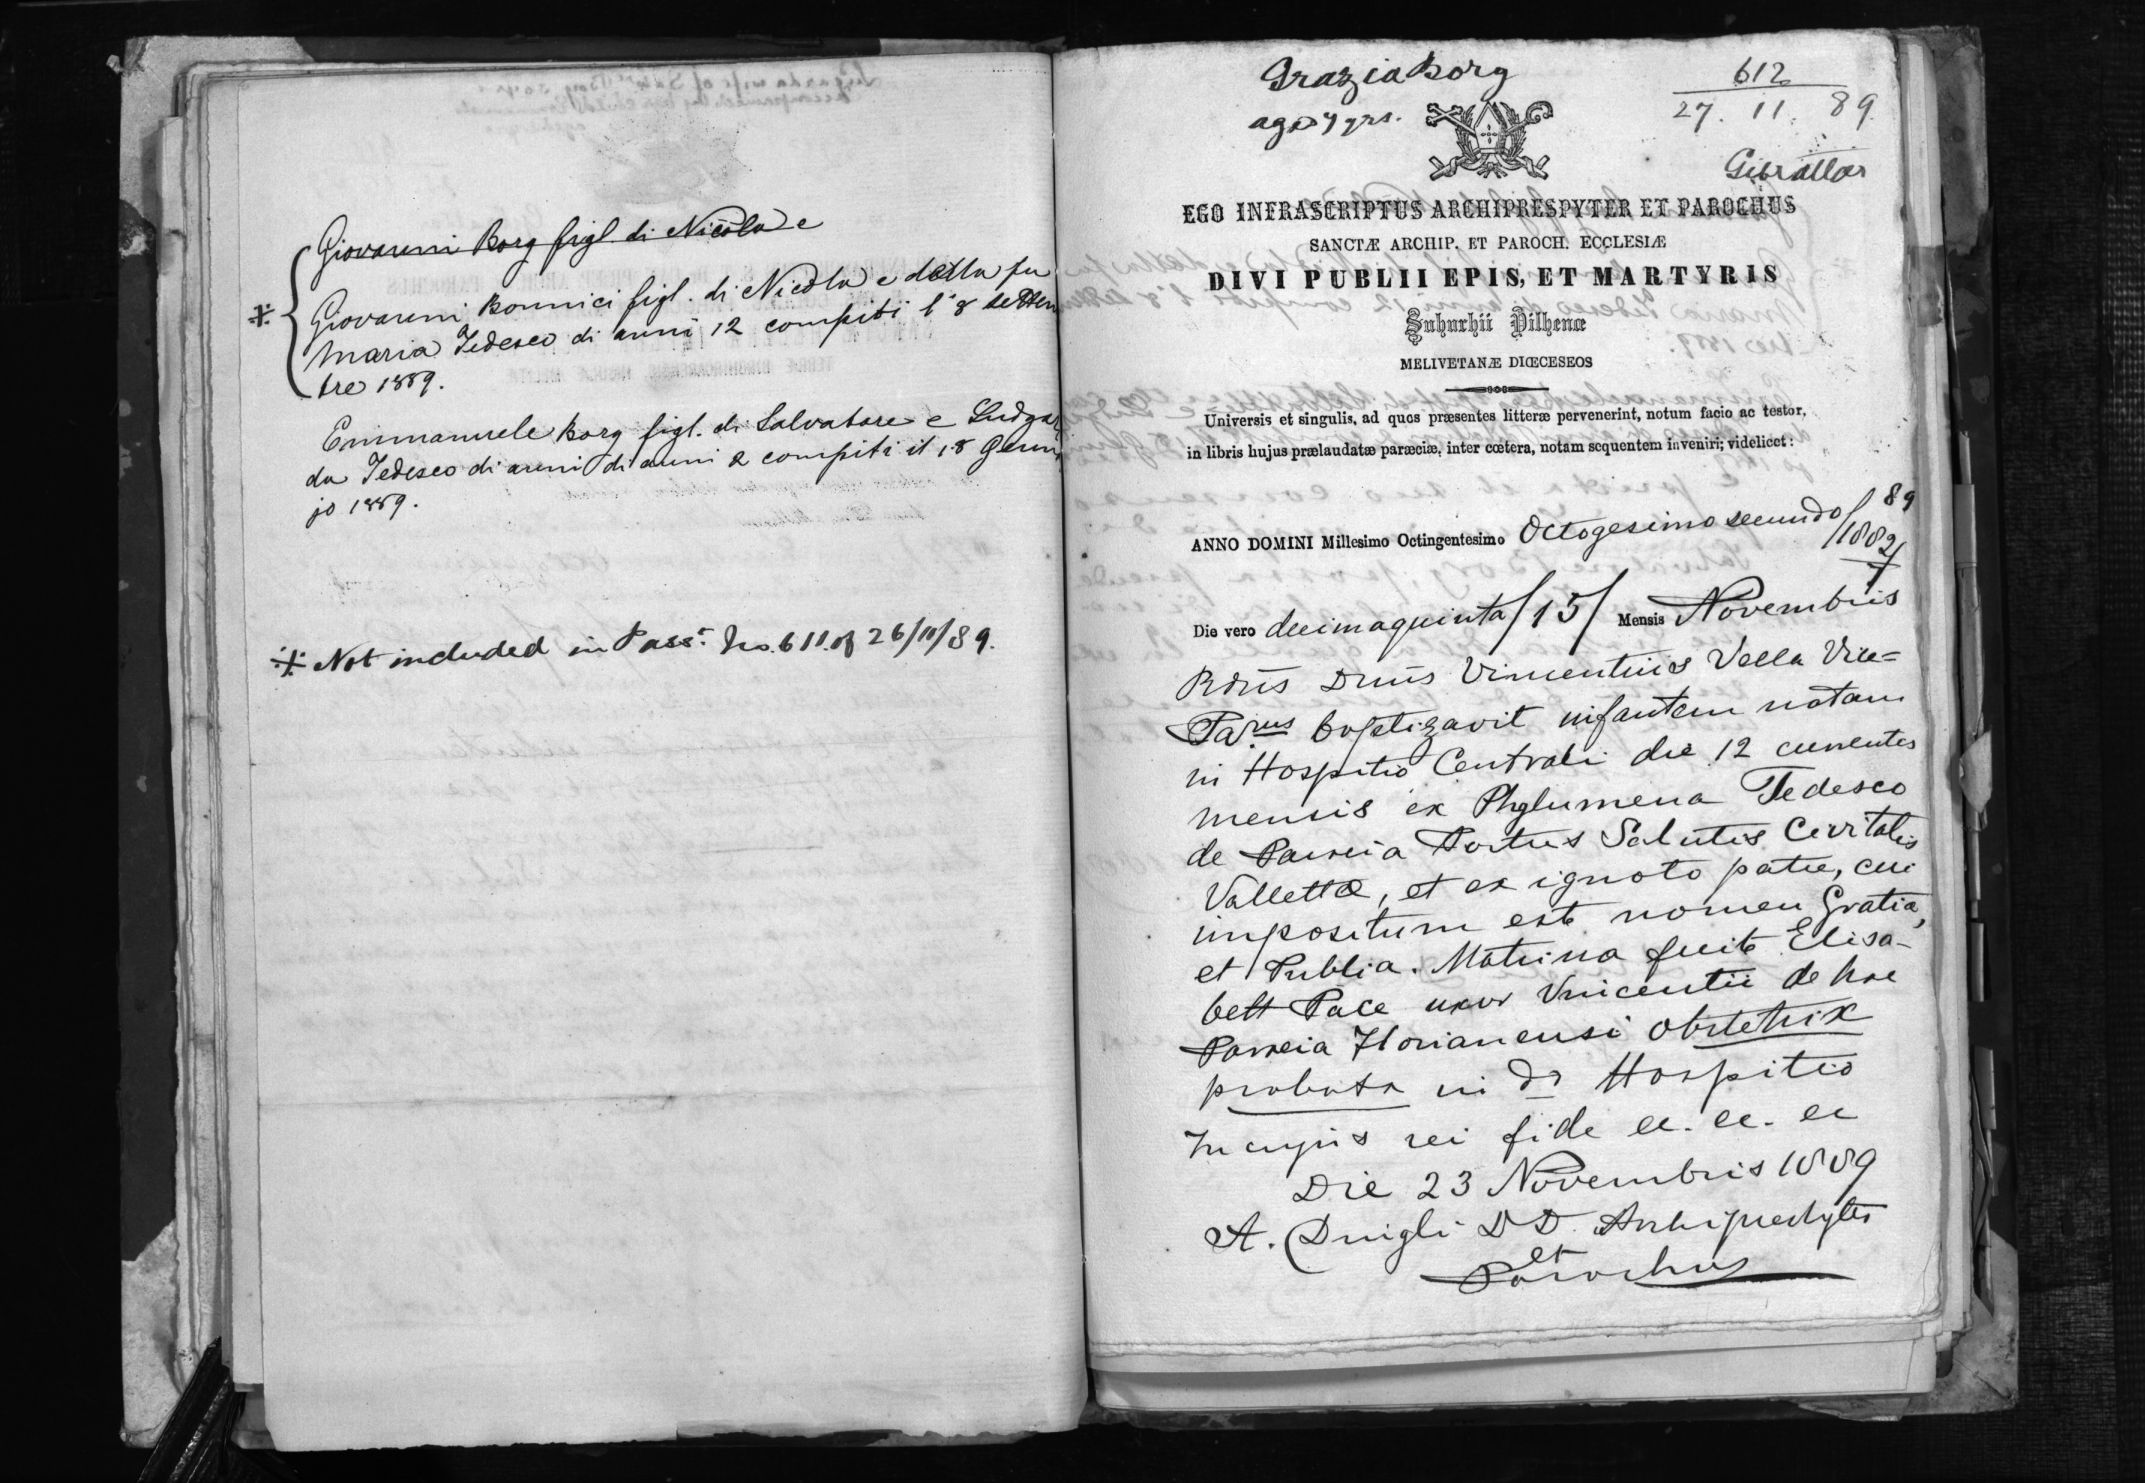 Giovanni Borg figl. di Nicola e
Giovanni Bonnici figl. di Nicola e della fu
Maria Tedesco di anni 12 compiti l'8 Settem
bre 1889.
Emmanuele Borg figl. di Salvatore e Ludgar
da Tedesco di anni di anni 2 compiti il 18 Genna
jo 1889.
Not included in Passt. No. 611 of 26/11/89.
Grazia Borg
age 7 yrs.
612
27. 11. 89.
Gibraltar
EGO INFRASCRIPTUS ARCHIPRESPYTER ET PAROCHUS
SANCTÆ ARCHIP. ET PAROCH. ECCLESIÆ
DIVI PUBLII EPIS, ET MARTYRIS
Suburbii Vilhenæ
MELIVETANÆ DIŒCESEOS
Universis et singulis, ad quos præsentes litteræ pervenerint, notum facio ac testor,
in libris hujus prælaudatæ paræciæ, inter cœtera, notam sequentem inveniri; videlicet:
89
ANNO DOMINI Millesimo Octingentesimo Octogesimo secundo /1882/
7
Die vero decimaquinta /15/ Mensis Novembris
Rdus Dnus Vincentius Vella Vice=
Parus baptizavit infantem natam
in Hospitio Centrali die 12 currentis
mensis ex Phylumena Tedesco
de Parœcia Portus Salutis Civitatis
Vallettæ, et ex ignoto patre, cui
impositum est nomen Gratia,
et Publia. Matrina fuit Elisa-
bett Pace uxor Vincentii de hac
Parœcia Florianensi obstetrix
probata in do Hospitio
In cujus rei fide ec. ec. ec
Die 23 Novembris 1889
A. Buigli D D. Archipresbyter
et
Parochus